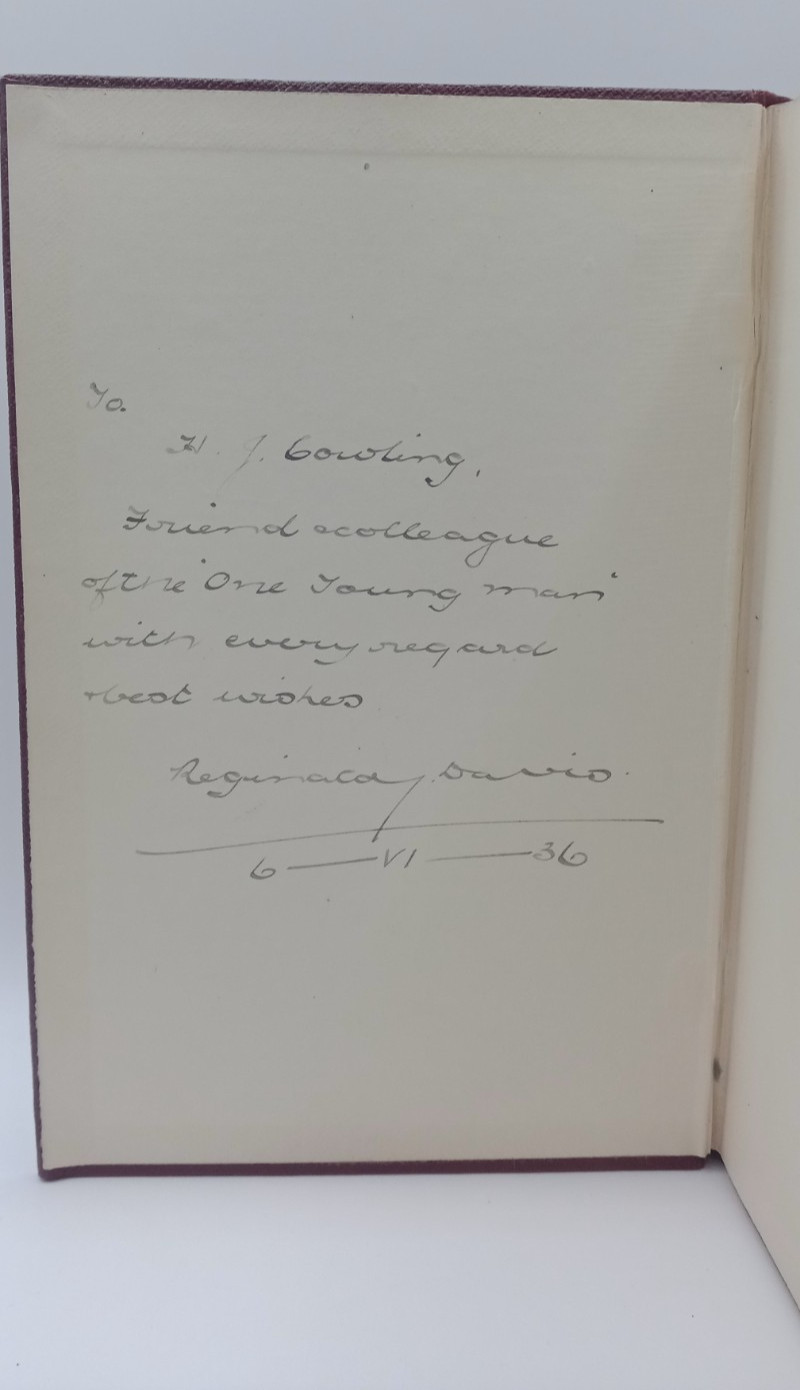 To.
H. J. Cowling,
Friend & colleague
of the 'One Young man'
with every regard
& best wishes
Reginald Davis.
6 — VI — 36